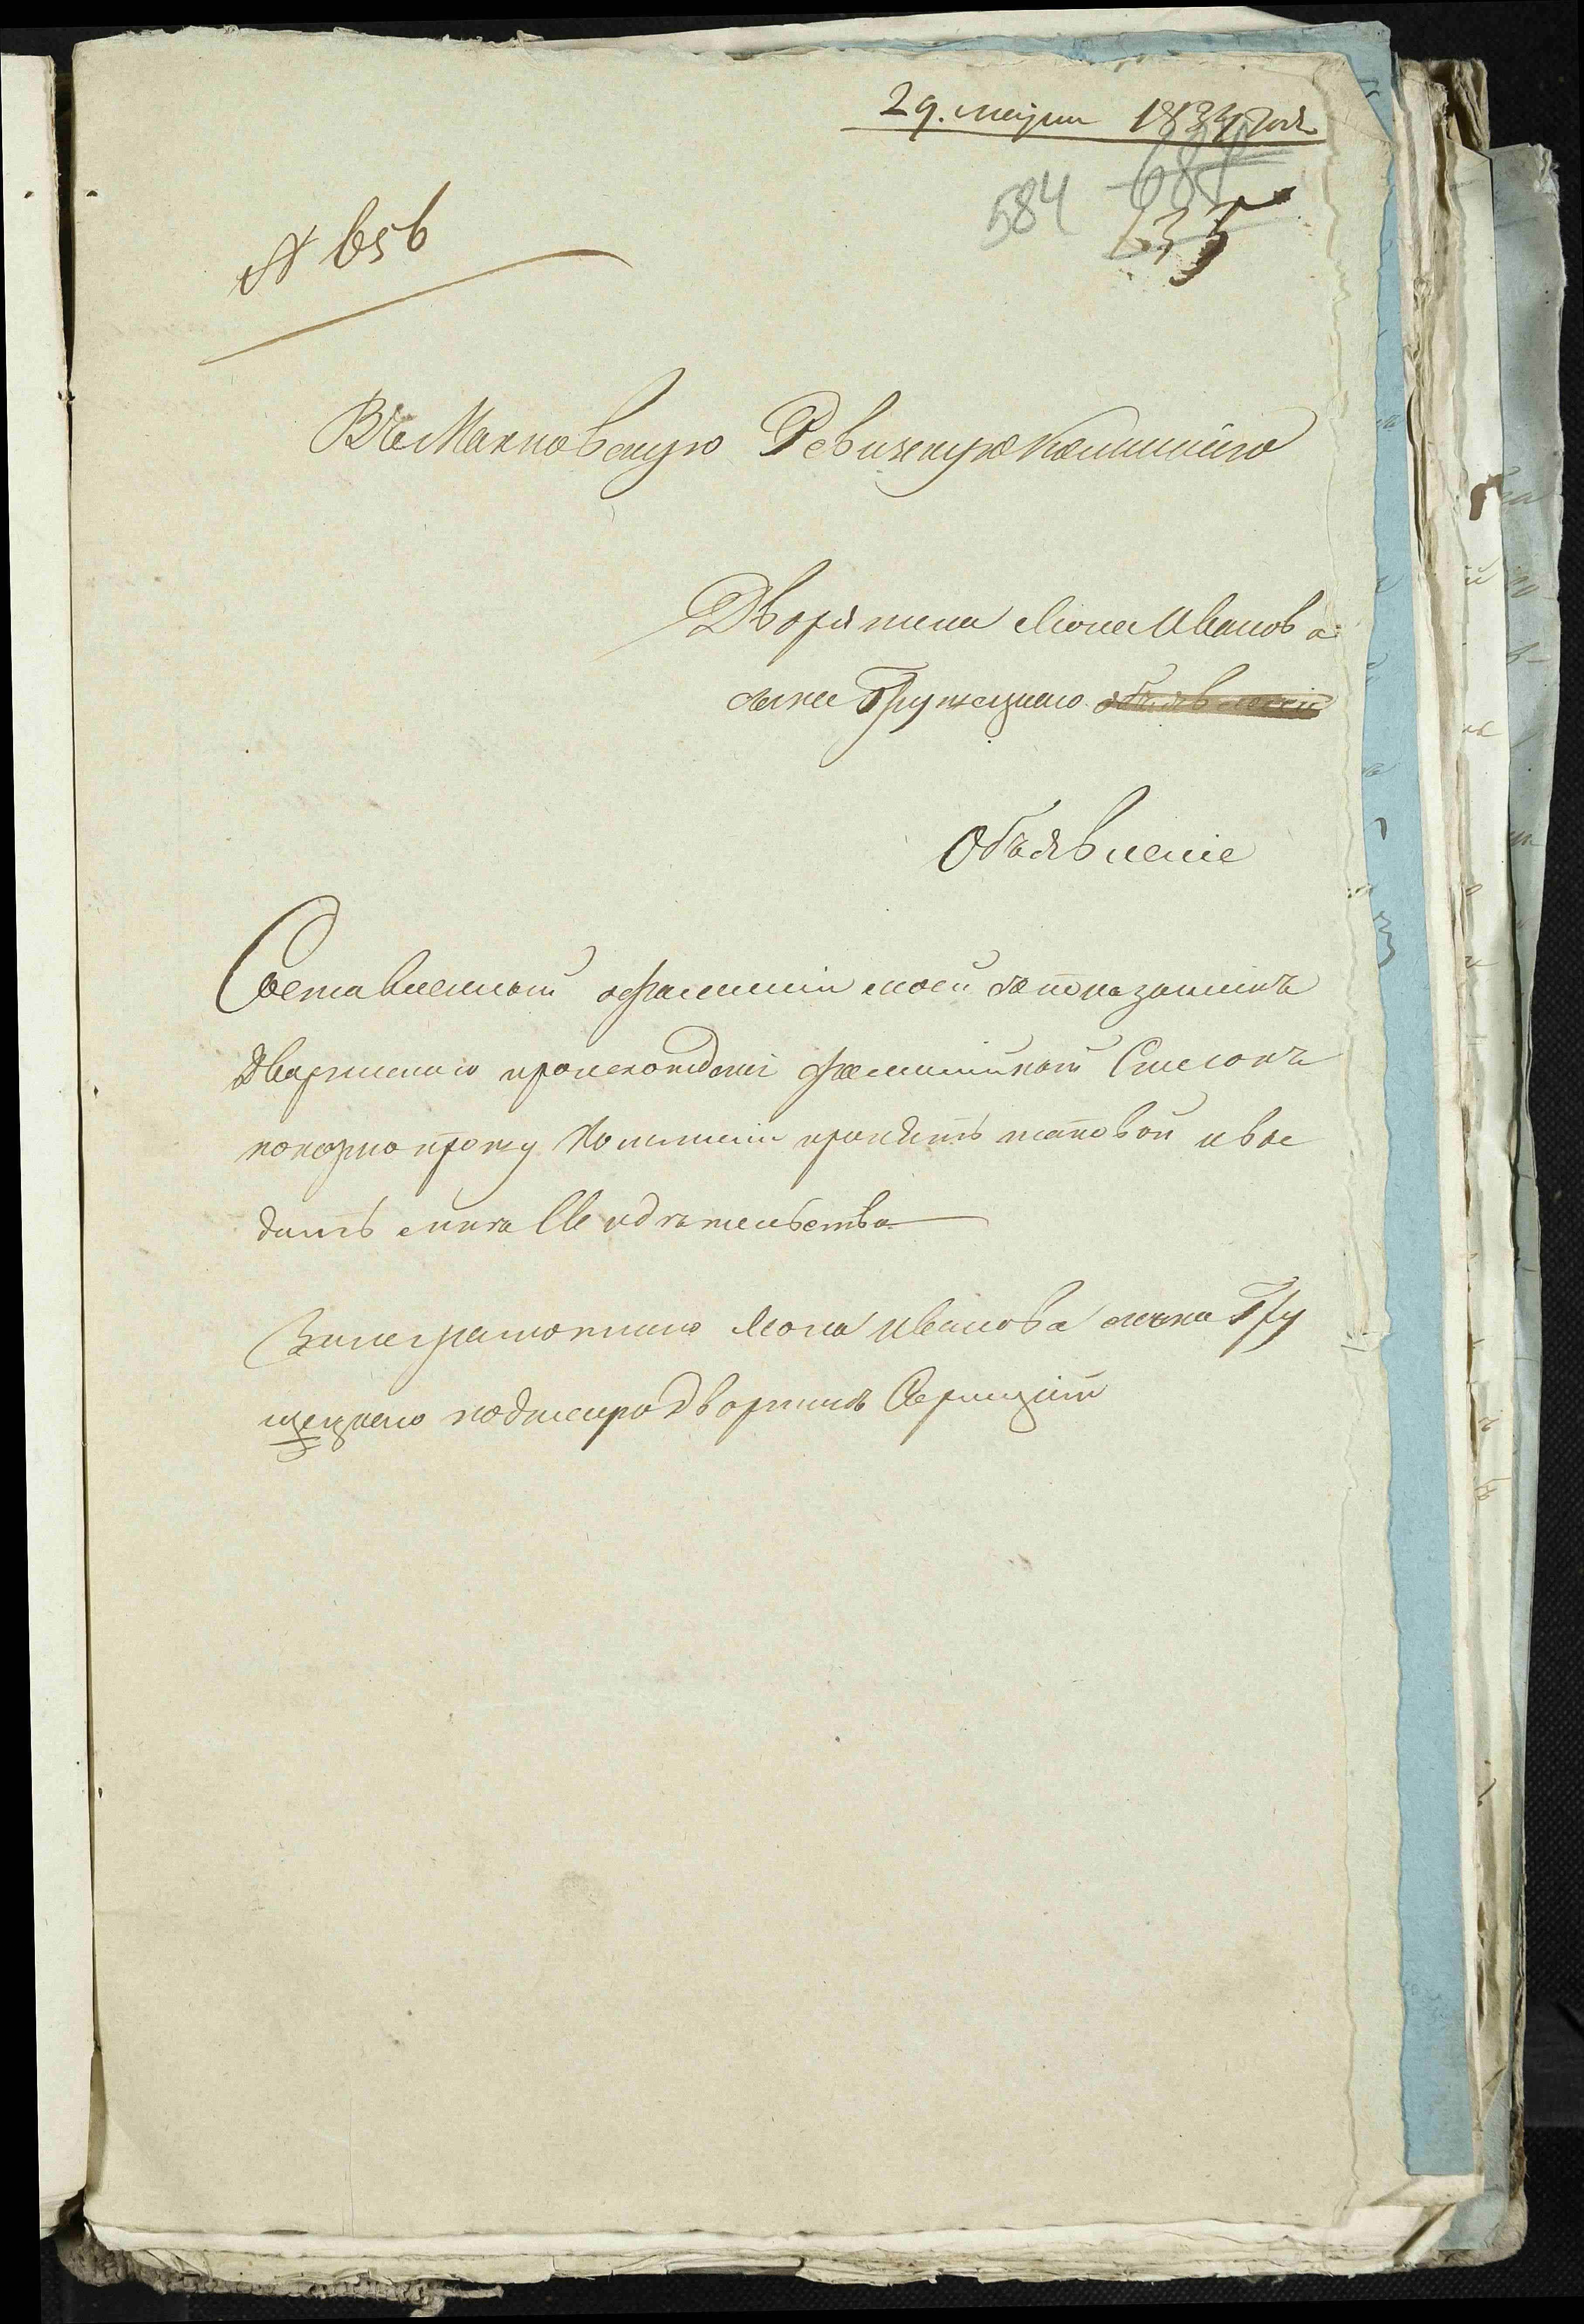 29. марта 1834 Года
584
635
№ 656
Въ Махновскую Ревизскую Коммисію
Дворянина Леона Иванова
сына Гружецкаго объявленіе
Объявленіе
Составленный о фамиліи моей съ показаніемъ
Дворянскаго происхожденія фамилійный Списокъ
покорно прошу Коммисіи принять таковой и вы
дать мнѣ Свидѣтельство
Вместо неграмотнаго Леона Иванова сына Гру
щецкаго подписался Дворянинъ